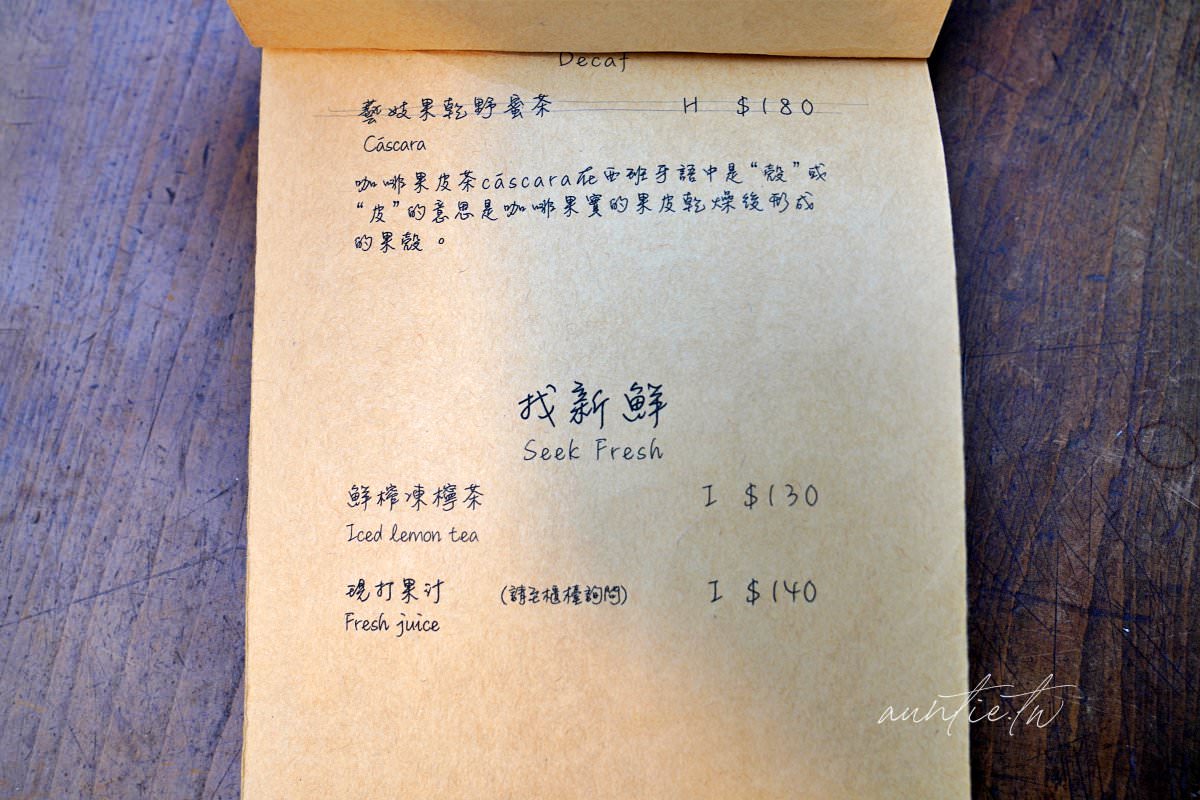 Decaf
藝妓果乾野蜜茶 H $180
Cáscara
咖啡果皮茶cáscara在西班牙語中是“殼”或
“皮”的意思是咖啡果實的果皮乾燥後形成
的果殼。
找新鮮
Seek Fresh
鮮榨凍檸茶 I $130
Iced lemon tea
現打果汁 (請至櫃檯詢問) I $140
Fresh juice
auntie.tw